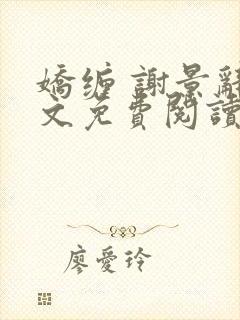 嬌缠 謝景辭
文免費閱讀
廖愛玲